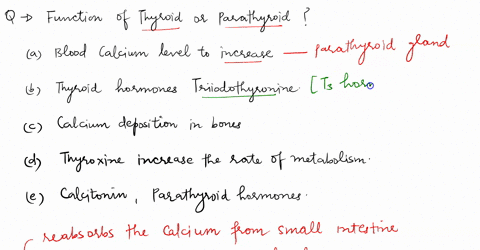 Q → Function of Thyroid or Parathyroid ?
(a) Blood Calcium level to increase — parathyroid gland
(b) Thyroid hormones Triiodothyronine [T3 hor
(c) Calcium deposition in bones
(d) Thyroxine increase the rate of metabolism.
(e) Calcitonin, Parathyroid hormones.
reabsorbs the Calcium from small intestine